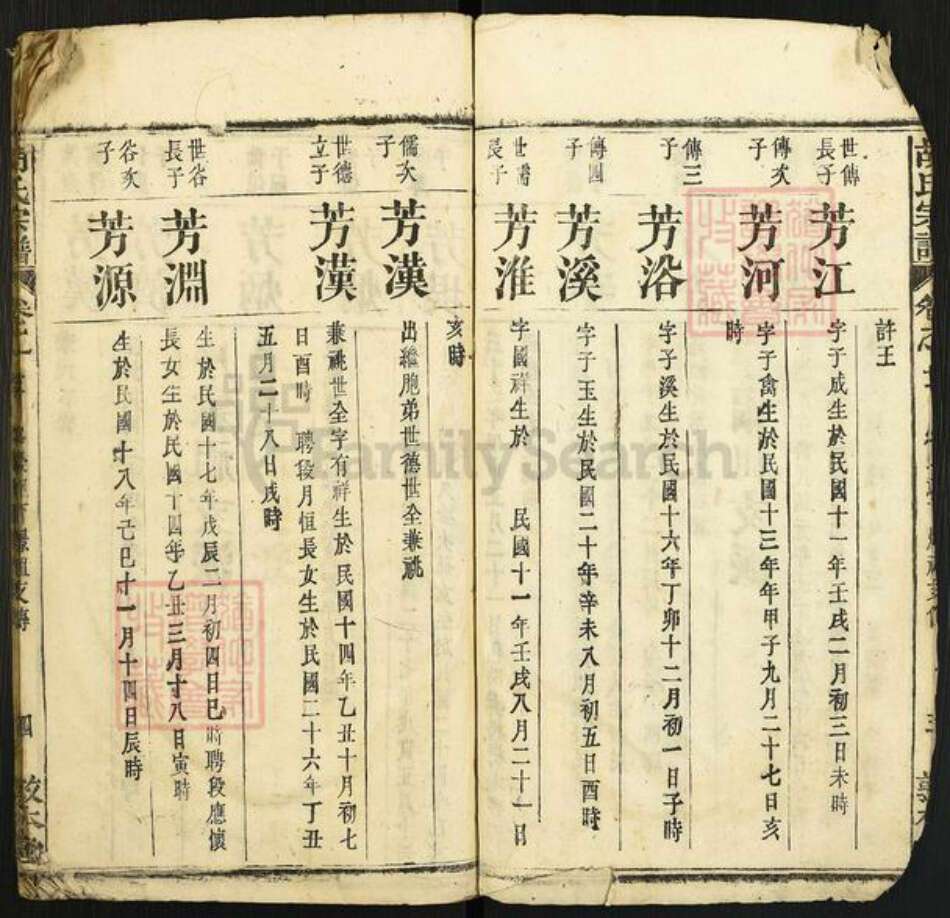 胡氏宗譜
許王
世傅長子
芳江
字子成生於民國十一年壬戌二月初三日未時
傅次子
芳河
字子禽生於民國十三年甲子九月二十七日亥
時
傅三子
芳沿
字子溪生於民國十六年丁卯十二月初一日子時
傅四子
芳溪
字子玉生於民國二十年辛未八月初五日酉時
世儒長子
芳淮
字國祥生於 民國十一年壬戌八月二十一日
亥時
儒次子
芳漢
出繼胞弟世德世全兼祧
世德立子
芳漢
兼祧世全字有祥生於民國十四年乙丑十月初七
日酉時 聘段月恒長女生於民國二十六年丁丑
五月二十八日戌時
世谷長子
芳淵
生於民國十七年戊辰二月初四日巳時聘段應懷
長女生於民國十四年乙丑三月十八日寅時
谷次子
芳源
生於民國十八年己巳十一月十四日辰時
胡氏宗譜
四
敦本堂
FamilySearch